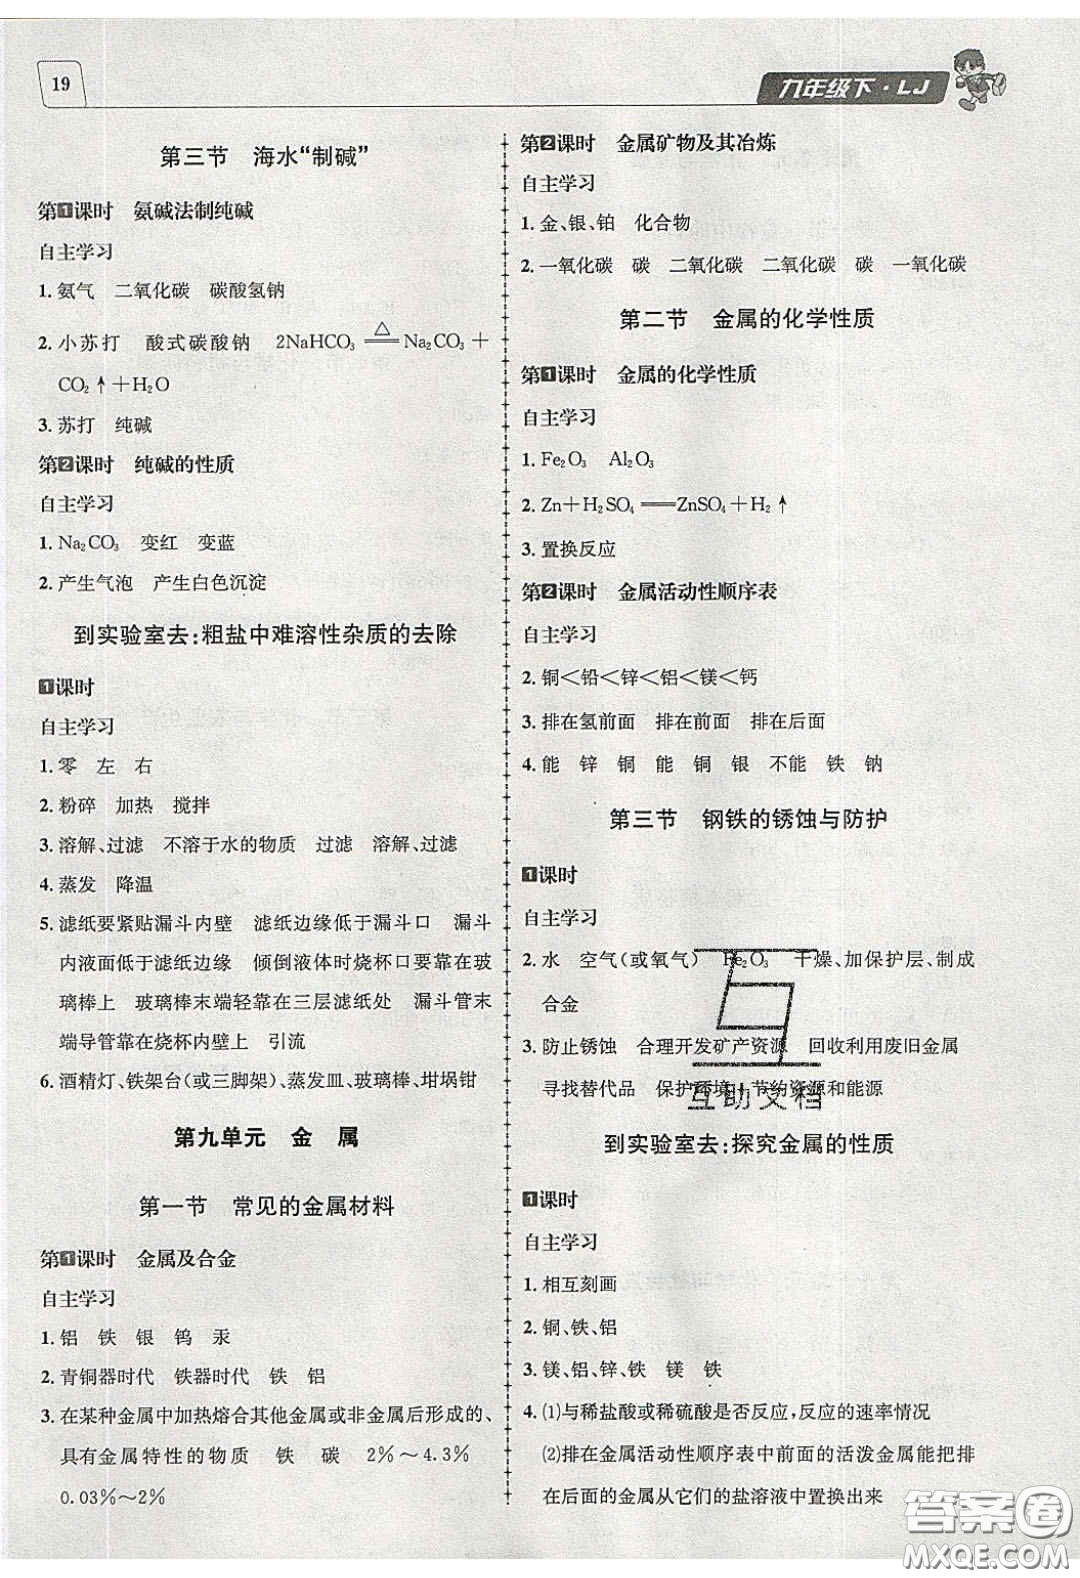 19
九年级下·LJ
第三节 海水“制碱”
第1课时 氨碱法制纯碱
自主学习
1. 氨气 二氧化碳 碳酸氢钠
2. 小苏打 酸式碳酸钠 2NaHCO₃ △══ Na₂CO₃＋
CO₂↑＋H₂O
3. 苏打 纯碱
第2课时 纯碱的性质
自主学习
1. Na₂CO₃ 变红 变蓝
2. 产生气泡 产生白色沉淀
到实验室去:粗盐中难溶性杂质的去除
1课时
自主学习
1. 零 左 右
2. 粉碎 加热 搅拌
3. 溶解、过滤 不溶于水的物质 过滤 溶解、过滤
4. 蒸发 降温
5. 滤纸要紧贴漏斗内壁 滤纸边缘低于漏斗口 漏斗
内液面低于滤纸边缘 倾倒液体时烧杯口要靠在玻
璃棒上 玻璃棒末端轻靠在三层滤纸处 漏斗管末
端导管靠在烧杯内壁上 引流
6. 酒精灯、铁架台(或三脚架)、蒸发皿、玻璃棒、坩埚钳
第九单元 金 属
第一节 常见的金属材料
第1课时 金属及合金
自主学习
1. 铝 铁 银 钨 汞
2. 青铜器时代 铁器时代 铁 铝
3. 在某种金属中加热熔合其他金属或非金属后形成的、
具有金属特性的物质 铁 碳 2%～4.3%
0.03%～2%
第2课时 金属矿物及其冶炼
自主学习
1. 金、银、铂 化合物
2. 一氧化碳 碳 二氧化碳 二氧化碳 碳 一氧化碳
第二节 金属的化学性质
第1课时 金属的化学性质
自主学习
1. Fe₂O₃ Al₂O₃
2. Zn＋H₂SO₄══ZnSO₄＋H₂↑
3. 置换反应
第2课时 金属活动性顺序表
自主学习
2. 铜＜铅＜锌＜铝＜镁＜钙
3. 排在氢前面 排在前面 排在后面
4. 能 锌 铜 能 铜 银 不能 铁 钠
第三节 钢铁的锈蚀与防护
1课时
自主学习
2. 水 空气(或氧气) Fe₂O₃ 干燥、加保护层、制成
合金
3. 防止锈蚀 合理开发矿产资源 回收利用废旧金属
寻找替代品 保护环境 节约资源和能源
互助文档
到实验室去:探究金属的性质
1课时
自主学习
1. 相互刻画
2. 铜、铁、铝
3. 镁、铝、锌、铁 镁 铁
4. (1)与稀盐酸或稀硫酸是否反应,反应的速率情况
(2)排在金属活动性顺序表中前面的活泼金属能把排
在后面的金属从它们的盐溶液中置换出来
答案圈
MXQE.COM